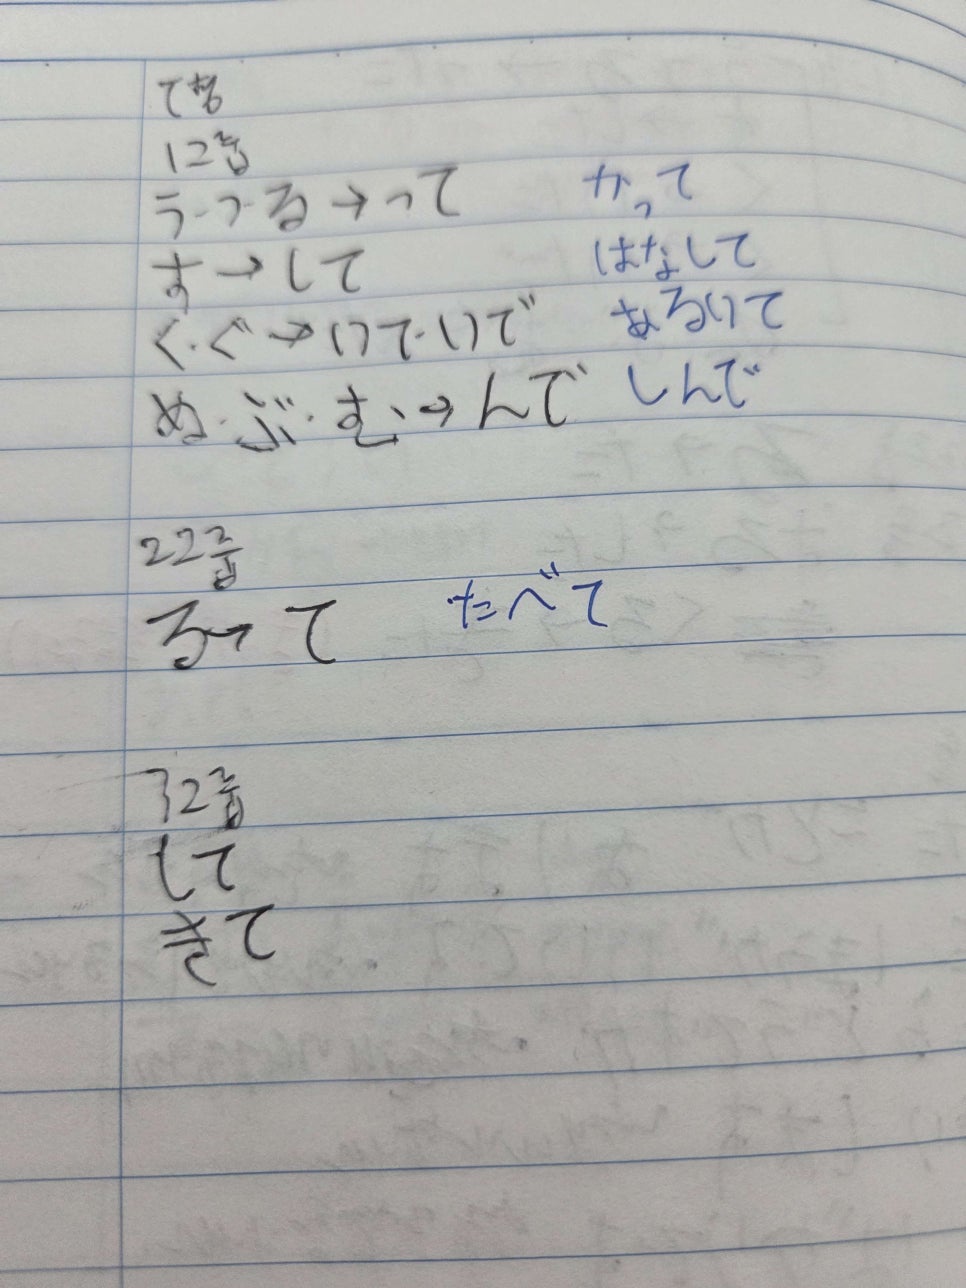 て형
1그룹
う・つ・る→って かって
す→して はなして
く・ぐ→いて・いで あるいて
ぬ・ぶ・む→んで しんで
2그룹
る→て たべて
3그룹
して
きて